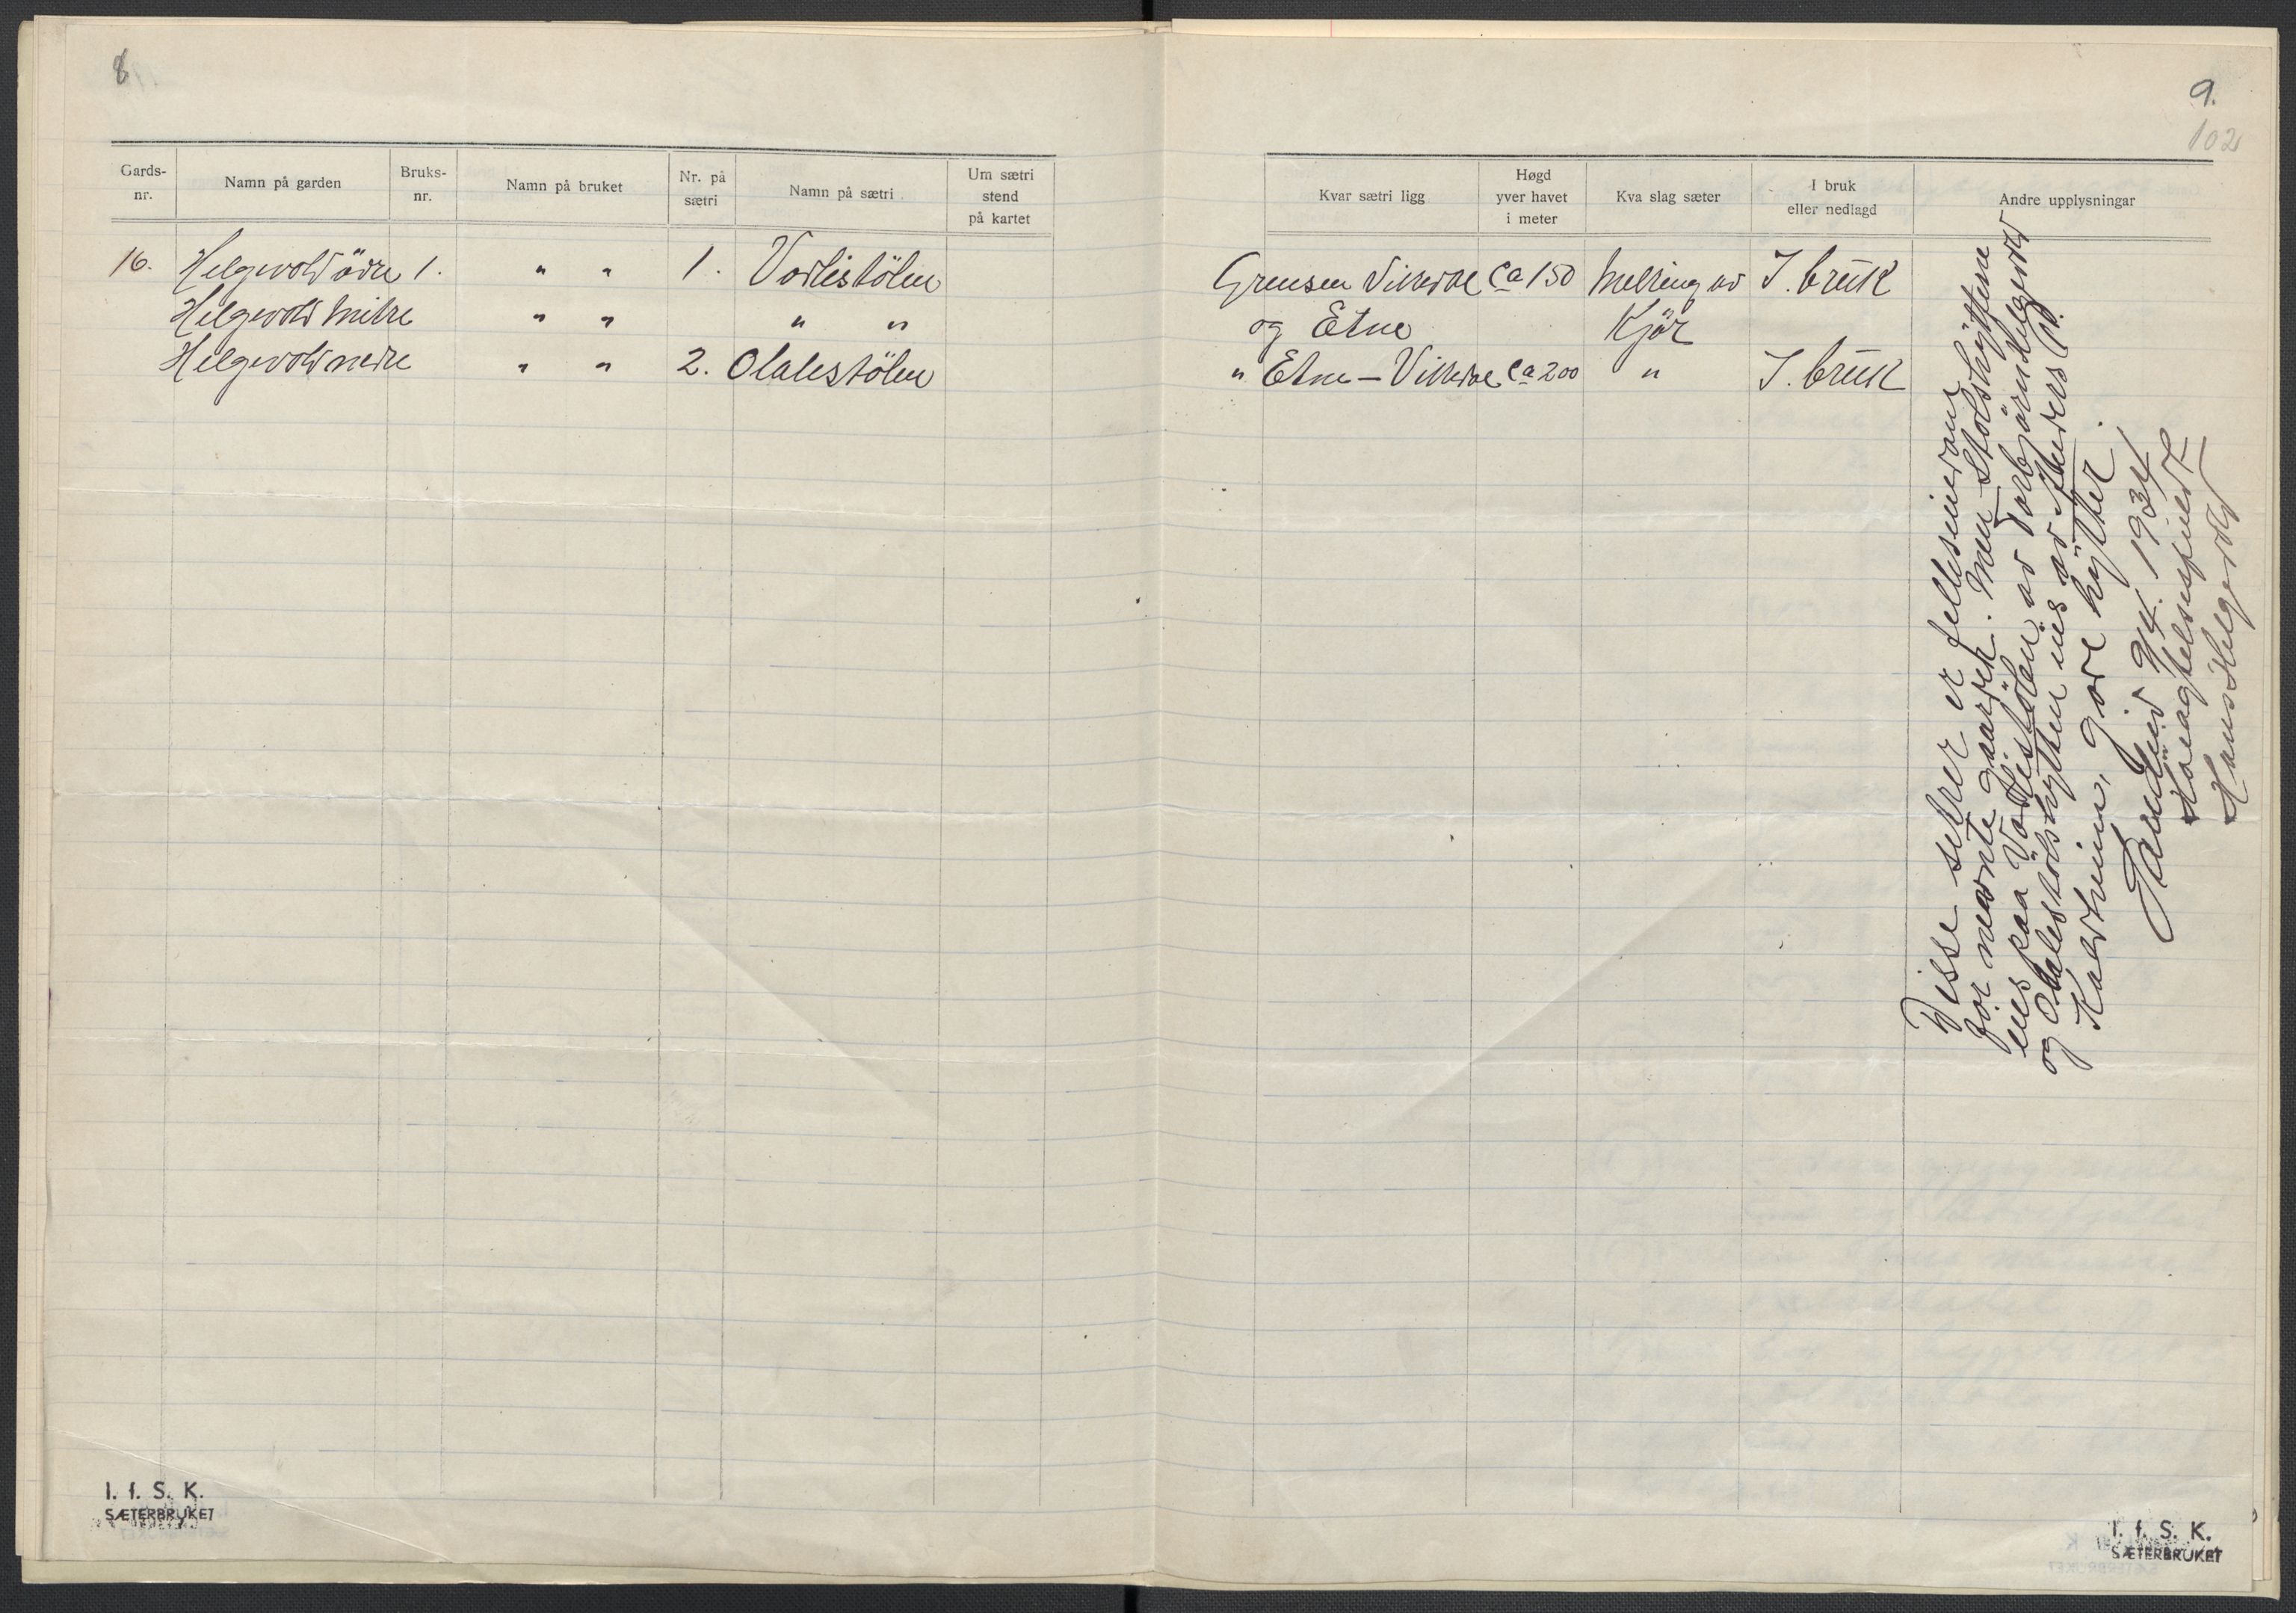 8
Gards-nr. Namn på garden Bruks-nr. Namn på bruket Nr. på sætri Namn på sætri Um sætri stend på kartet
16. Helgevold övre 1. " " 1. Vorlistölen
Helgevold mitre " " " "
Helgevold nedre " " 2. Olalestölen
I. f. S. K.
SÆTERBRUKET
9.
102
Kvar sætri ligg Høgd yver havet i meter Kva slag sæter I bruk eller nedlagd Andre upplysningar
Grensen Vikedal ca 150 Melking av I. bruk
og Etne Kjör
" Etne - Vikedal ca 200 " I. bruk
Disse setrer er felleseiedom
for nevnte gaarder. Men Stölshyttene
eies paa Vorlistölen av Torbjörn Helgevold
og Olalestölshytten eies av Anders
gode hytter.
9/4. 1934
Hans Helgevold
I. f. S. K.
SÆTERBRUKET